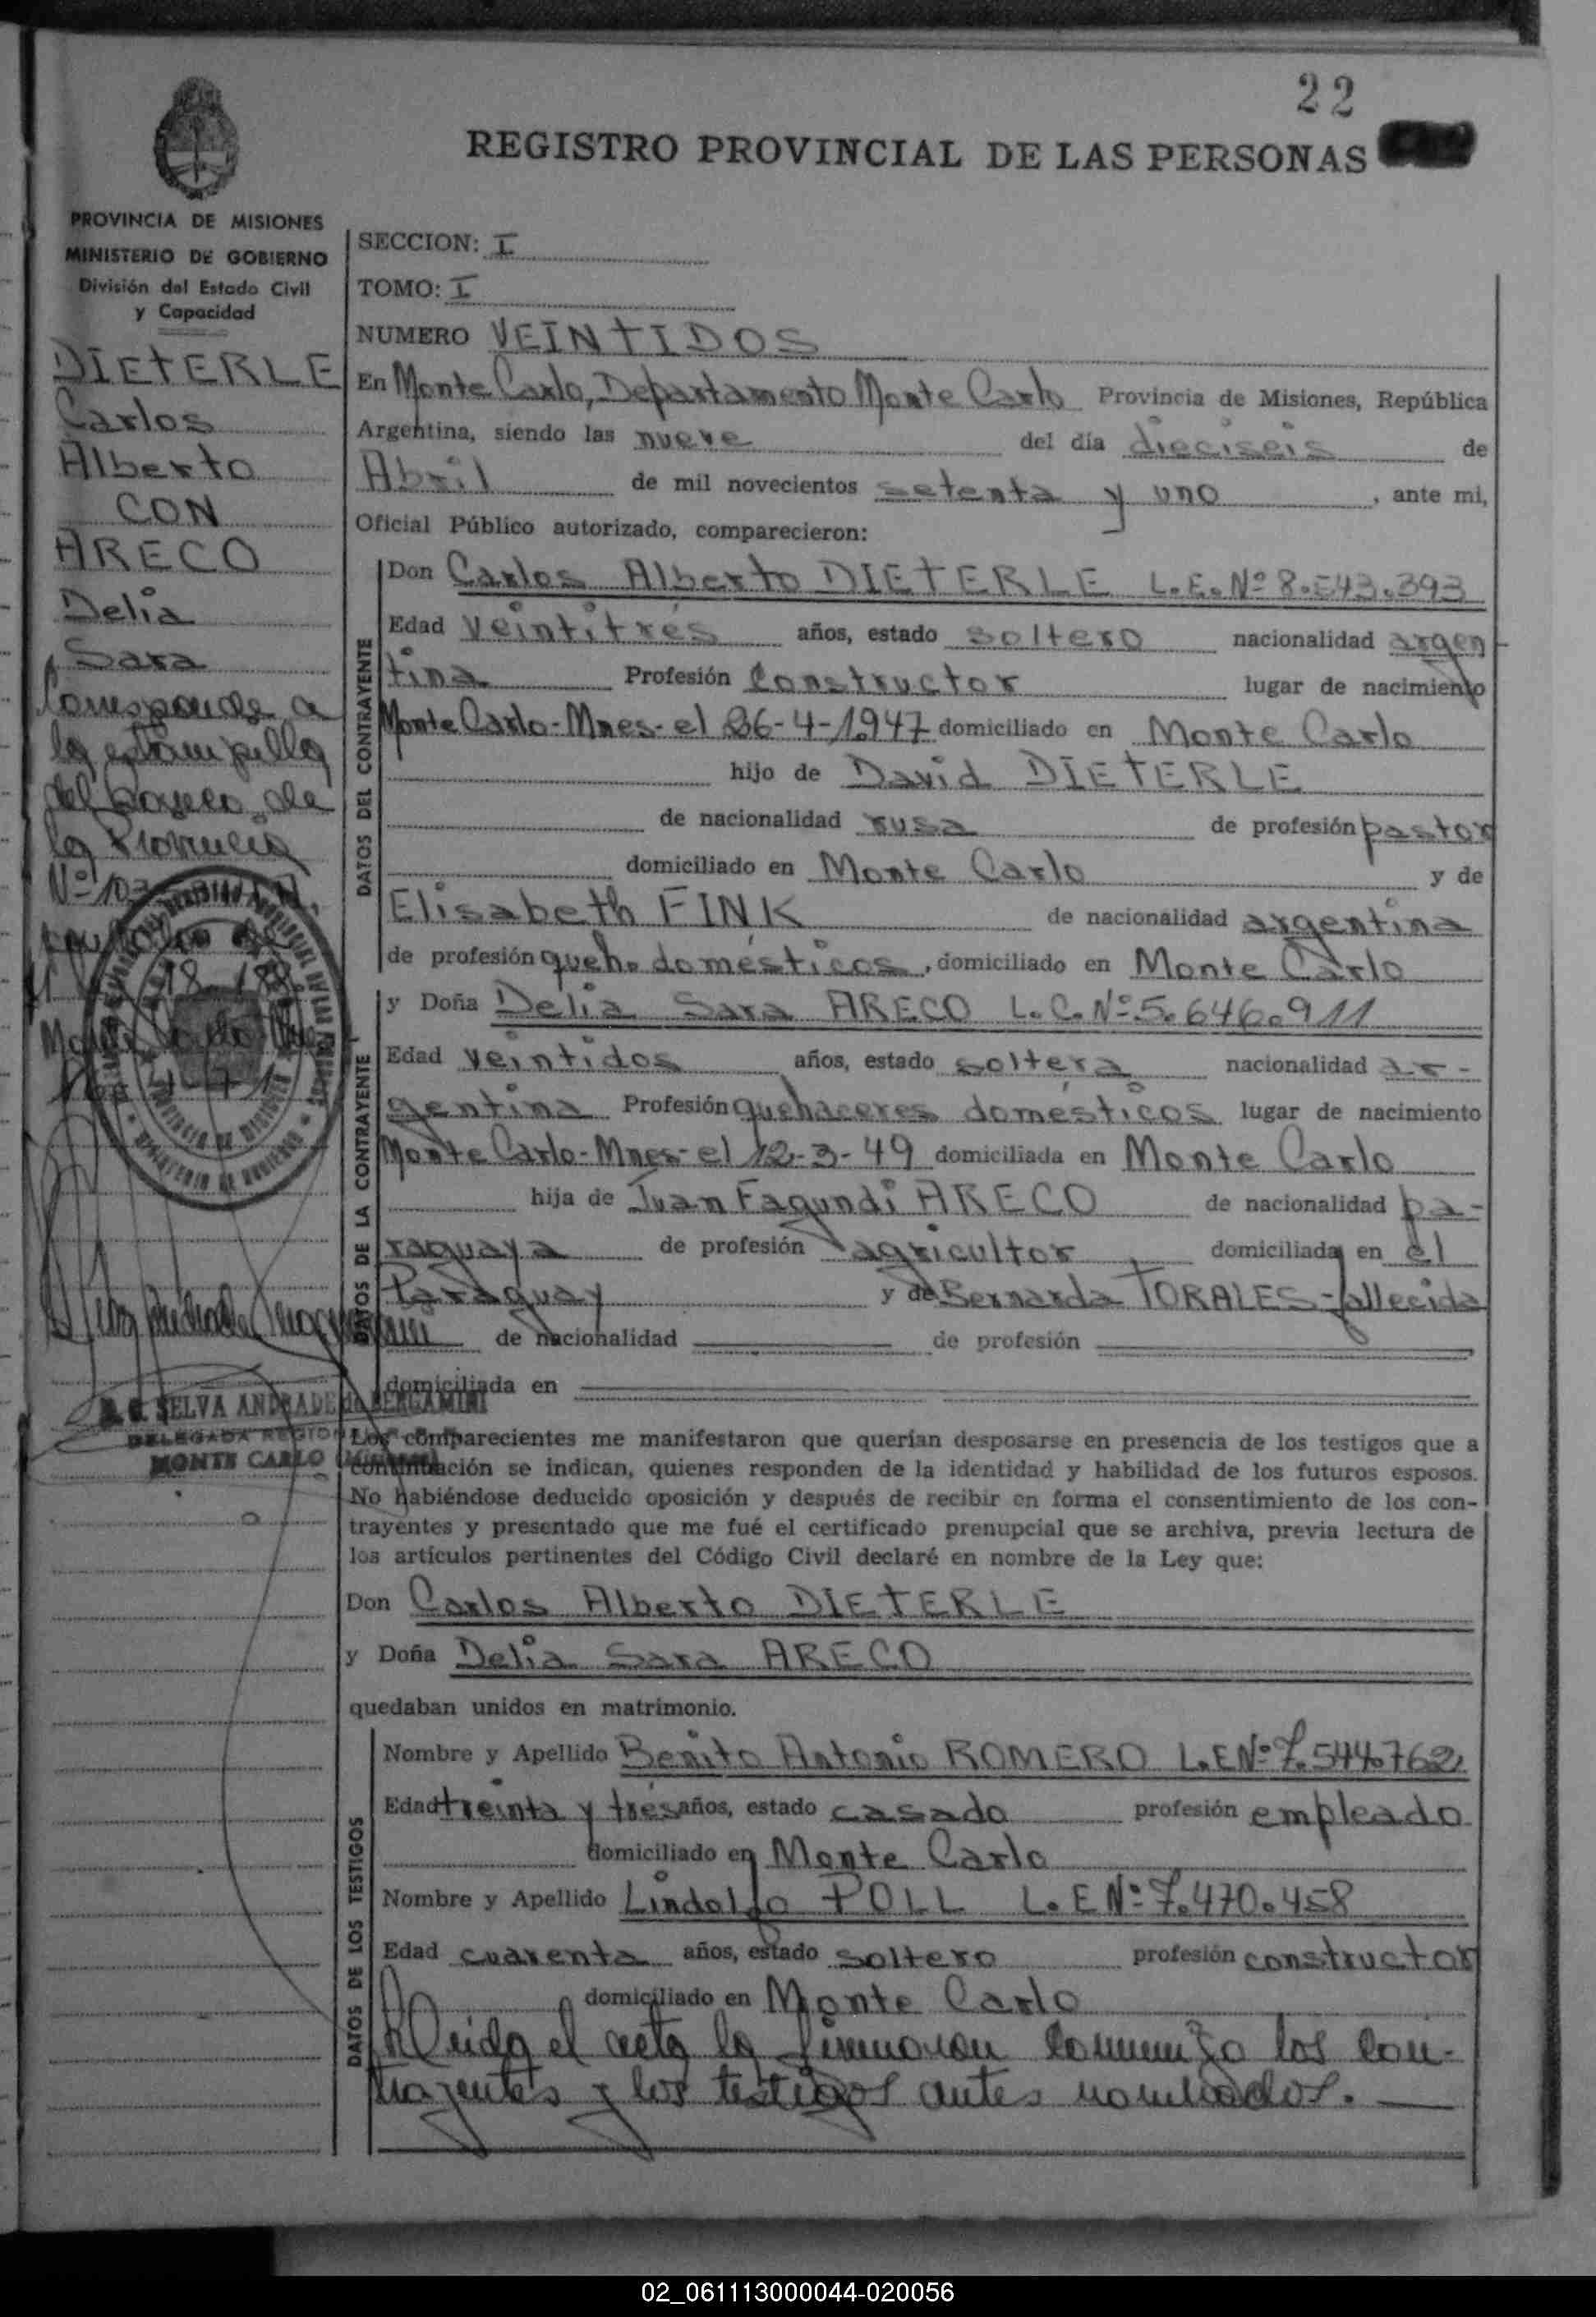 22
REGISTRO PROVINCIAL DE LAS PERSONAS
PROVINCIA DE MISIONES
MINISTERIO DE GOBIERNO
División del Estado Civil
y Capacidad
DIETERLE
Carlos
Alberto
CON
ARECO
Delia
Sara
Corresponde a
la estampilla
del Banco de
la Provincia
Nº
SELVA ANDRADE de BERGAMINI
DELEGADA
MONTE CARLO
SECCION: I
TOMO: I
NUMERO VEINTIDOS
En Monte Carlo, Departamento Monte Carlo Provincia de Misiones, República
Argentina, siendo las nueve del día dieciseis de
Abril de mil novecientos setenta y uno, ante mi,
Oficial Público autorizado, comparecieron:
DATOS DEL CONTRAYENTE
Don Carlos Alberto DIETERLE L.E.Nº 8.543.393
Edad veintitrés años, estado soltero nacionalidad argen-
tina Profesión Constructor lugar de nacimiento
Monte Carlo-Mnes-el 26-4-1947 domiciliado en Monte Carlo
hijo de David DIETERLE
de nacionalidad rusa de profesión pastor
domiciliado en Monte Carlo y de
Elisabeth FINK de nacionalidad argentina
de profesión queh. domésticos, domiciliado en Monte Carlo
DATOS DE LA CONTRAYENTE
y Doña Delia Sara ARECO L.C.Nº 5.646.911
Edad veintidos años, estado soltera nacionalidad ar-
gentina Profesión quehaceres domésticos lugar de nacimiento
Monte Carlo-Mnes-el 12-3-49 domiciliada en Monte Carlo
hija de Juan Fagundi ARECO de nacionalidad pa-
raguaya de profesión agricultor domiciliada en el
Paraguay y de Bernarda TORALES-fallecida
de nacionalidad de profesión
domiciliada en
Los comparecientes me manifestaron que querían desposarse en presencia de los testigos que a
continuación se indican, quienes responden de la identidad y habilidad de los futuros esposos.
No habiéndose deducido oposición y después de recibir en forma el consentimiento de los con-
trayentes y presentado que me fué el certificado prenupcial que se archiva, previa lectura de
los artículos pertinentes del Código Civil declaré en nombre de la Ley que:
Don Carlos Alberto DIETERLE
y Doña Delia Sara ARECO
quedaban unidos en matrimonio.
DATOS DE LOS TESTIGOS
Nombre y Apellido Benito Antonio ROMERO L.E Nº 7.544.762
Edad treinta y trés años, estado casado profesión empleado
domiciliado en Monte Carlo
Nombre y Apellido Lindolfo POLL L.E Nº 7.470.458
Edad cuarenta años, estado soltero profesión constructor
domiciliado en Monte Carlo
Leida el acta la firmaron conmigo los con-
trayentes y los testigos antes nombrados.
02_061113000044-020056